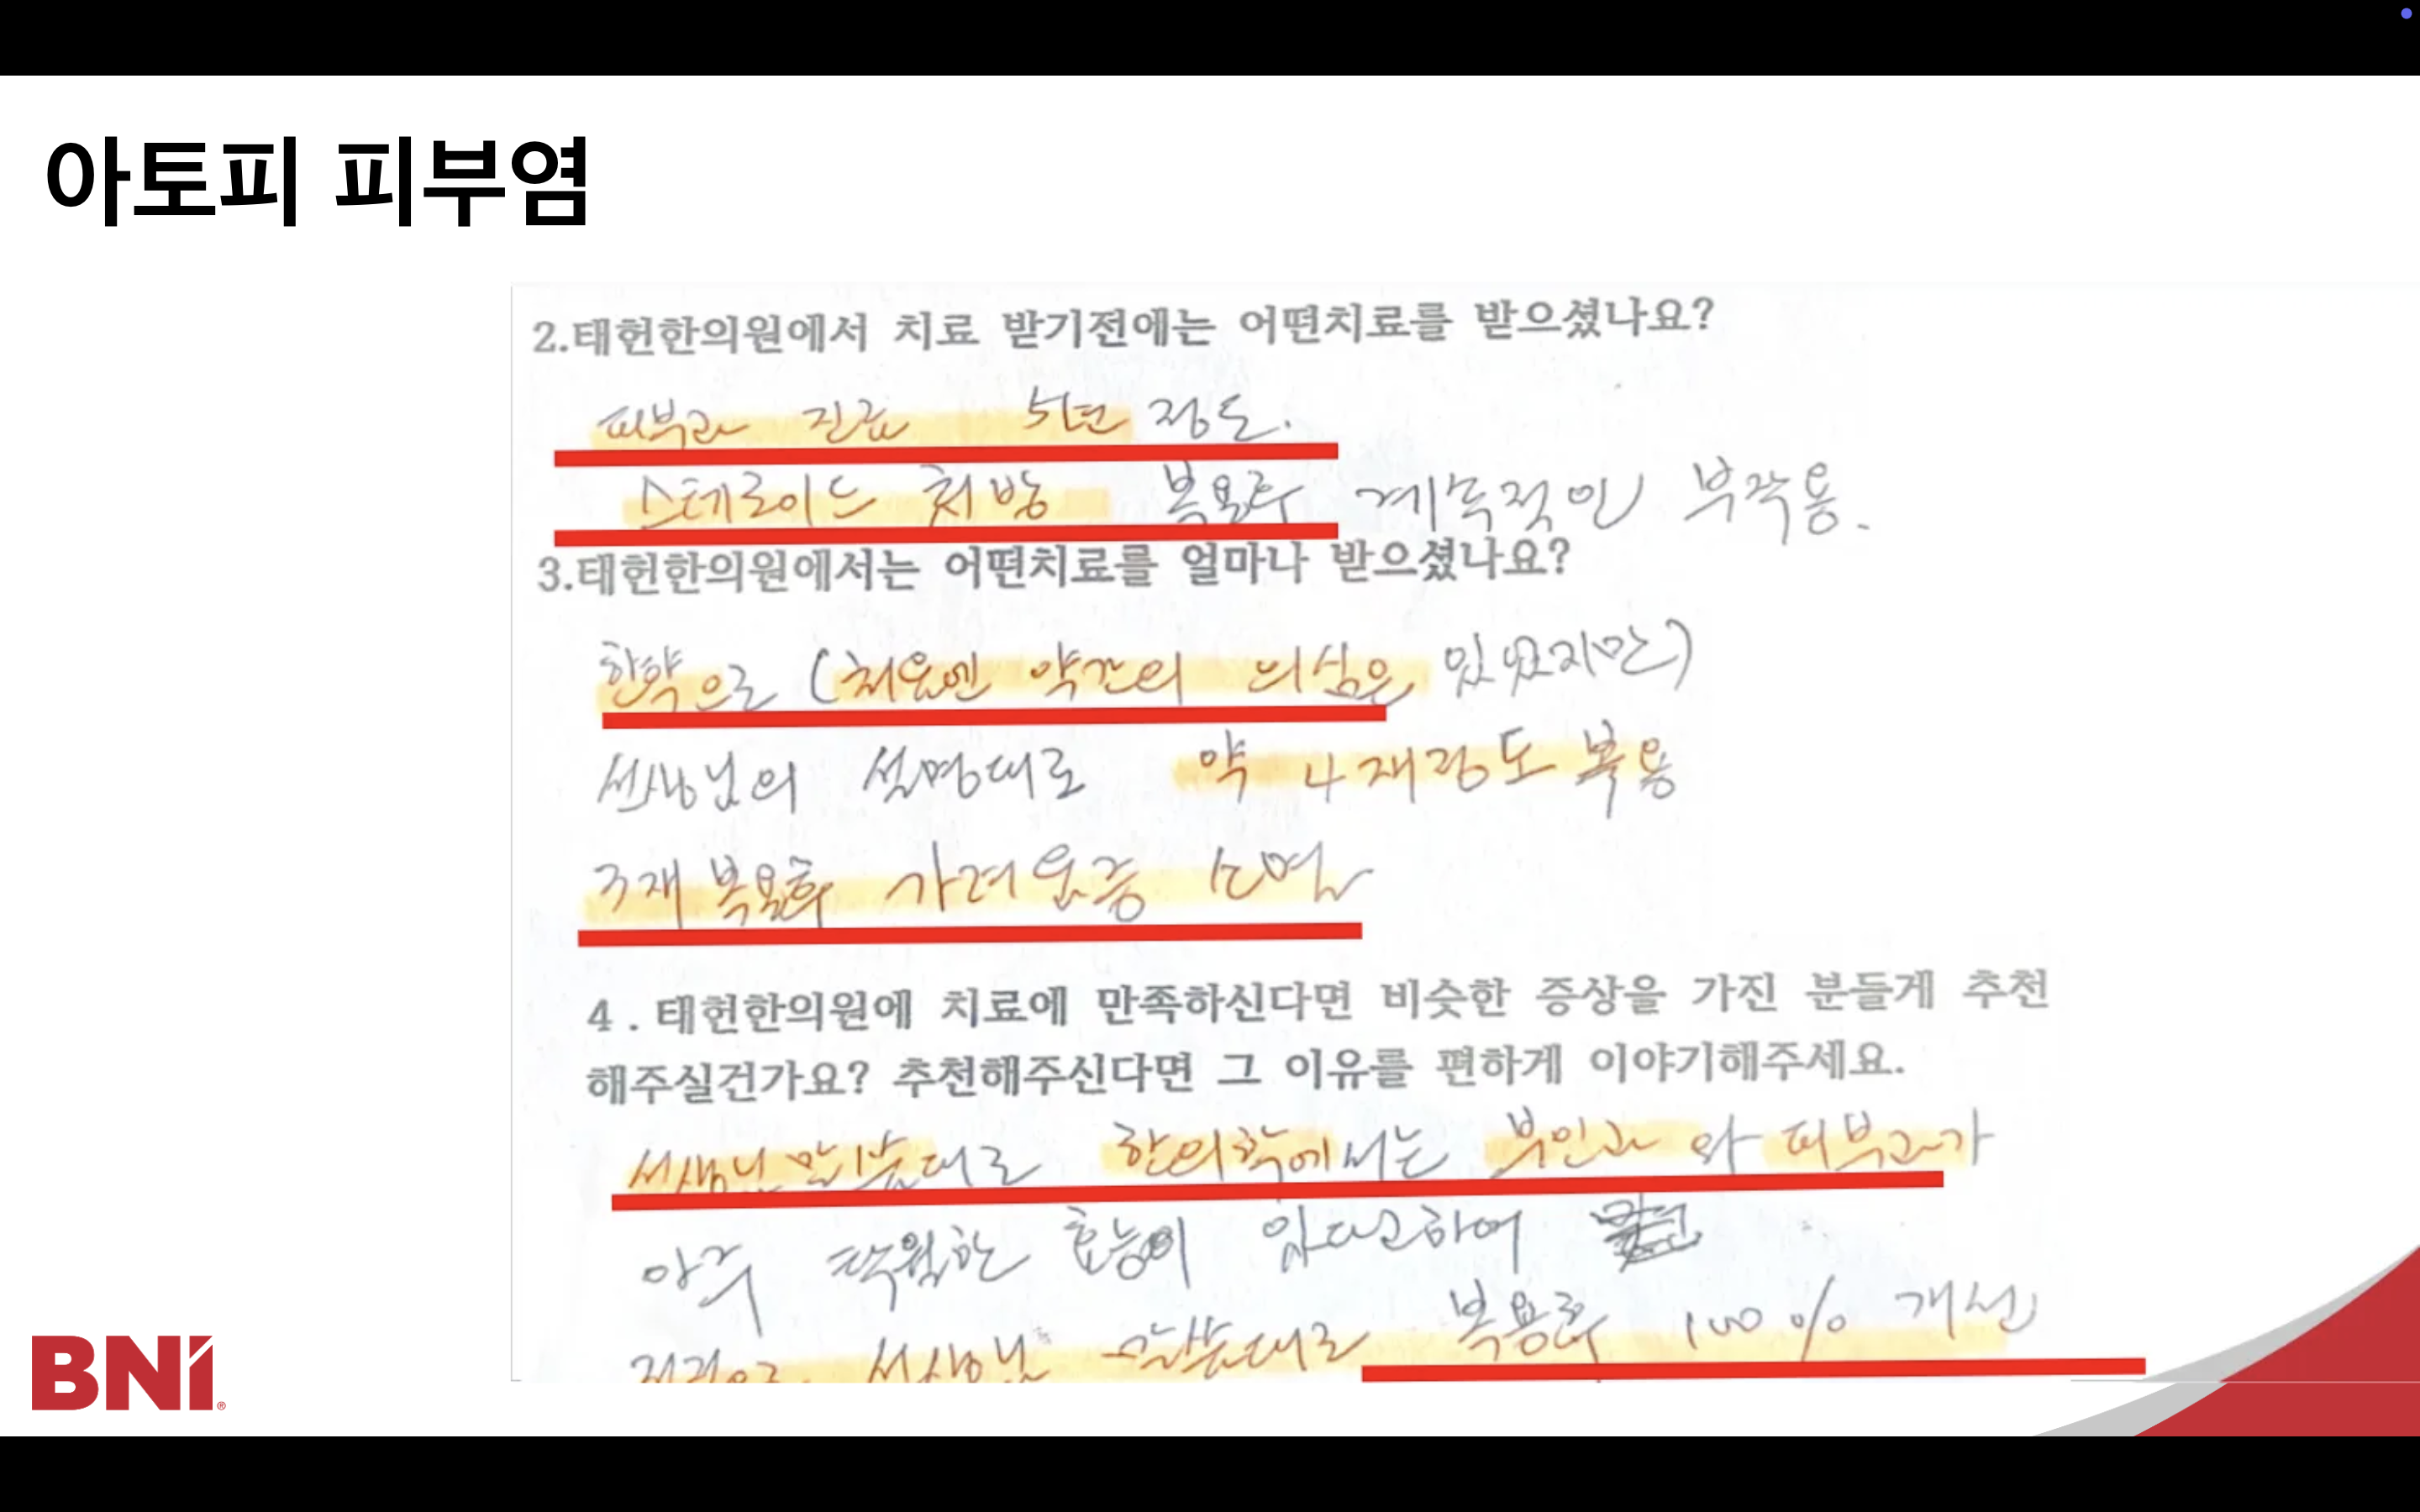 아토피 피부염
2.태헌한의원에서 치료 받기전에는 어떤치료를 받으셨나요?
피부과 진료 5년 정도.
스테로이드 처방 복용후 계속적인 부작용.
3.태헌한의원에서는 어떤치료를 얼마나 받으셨나요?
한약으로 (처음엔 약간의 의심은 있었지만)
선생님의 설명대로 약 4재정도 복용
3재 복용후 가려움증 소멸
4. 태헌한의원에 치료에 만족하신다면 비슷한 증상을 가진 분들게 추천
해주실건가요? 추천해주신다면 그 이유를 편하게 이야기해주세요.
선생님 말씀대로 한의학에서는 부인과 와 피부과가
아주 탁월한 효능이 있다고하여
선생님 말씀대로 복용후 100% 개선
BNI®